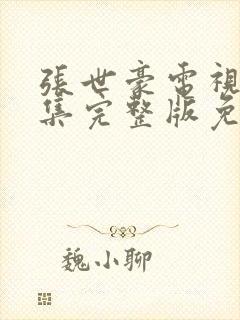 張世豪電視
集完整版免
魏小聊